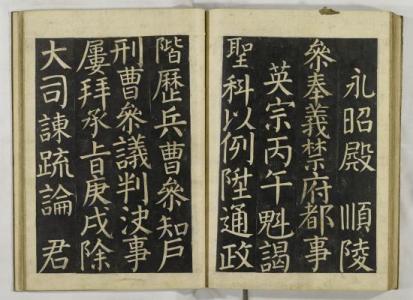 永昭殿 順陵
參奉義禁府都事
英宗丙午魁謁
聖科以例陞通政
階歷兵曹參知戶
刑曹參議判決事
屢拜承旨庚戌除
大司諫疏論 君